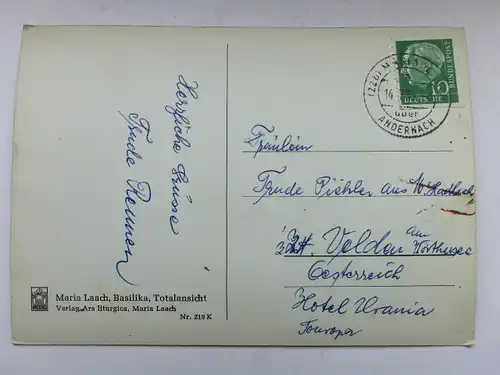 Herzliche Grüsse
Trude
Maria Laach, Basilika, Totalansicht
Verlag Ars liturgica, Maria Laach
Nr. 219 K
(22b) M
14
über
ANDERNACH
10
DEUTSCHE
BUNDESPOST
Fräulein
Trude Pichler aus
Velden am
Wörthersee
Oesterreich
Hotel Urania
Touropa